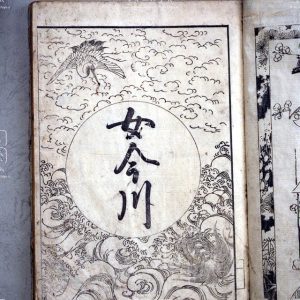 女今川